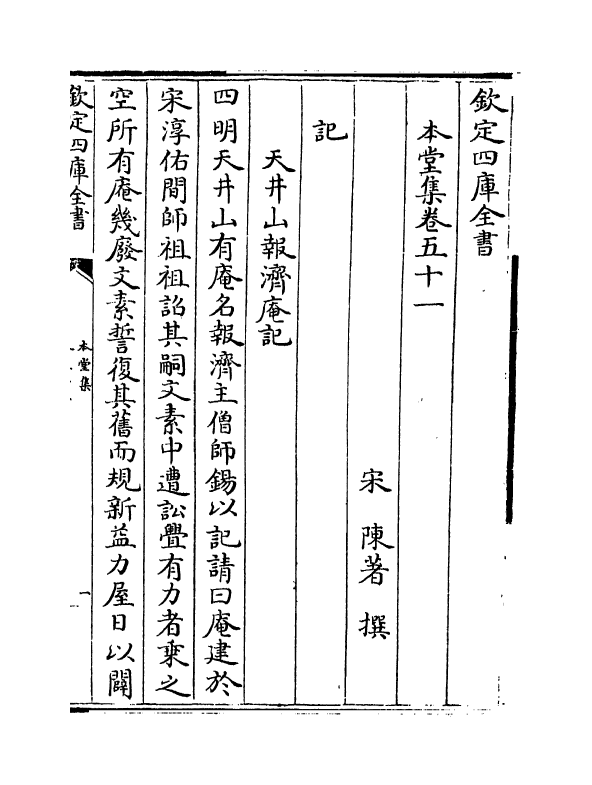 欽定四庫全書
本堂集卷五十一
宋 陳著 撰
記
天井山報濟庵記
四明天井山有庵名報濟主僧師錫以記請曰庵建於
宋淳佑間師祖祖詔其嗣文素中遭訟釁有力者乗之
空所有庵幾廢文素誓復其舊而規新益力屋日以闢
欽定四庫全書
本堂集
一